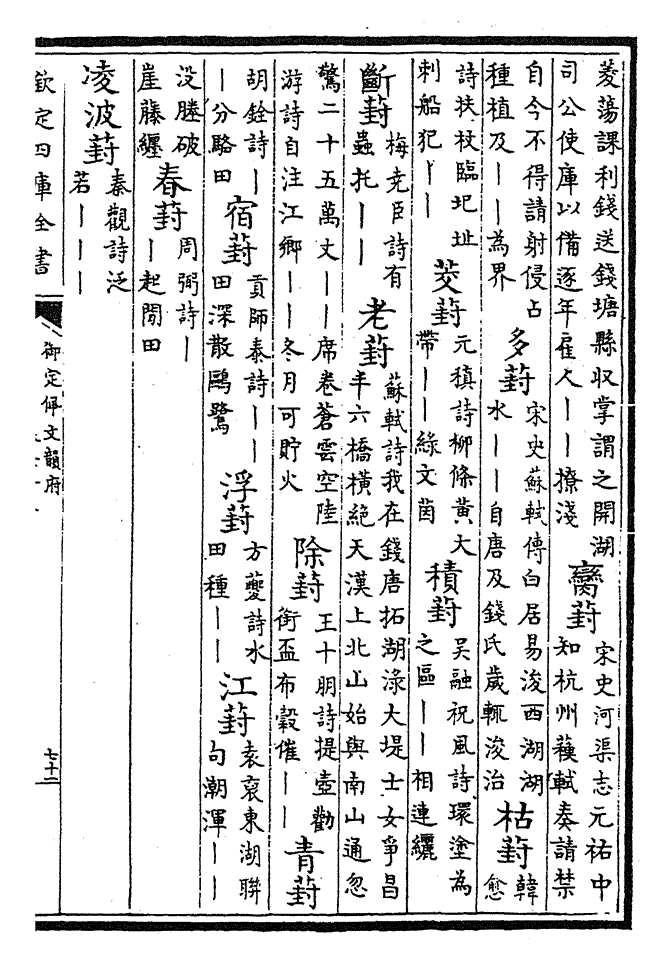 菱蕩課利錢送錢塘縣収掌謂之開湖
司公使庫以備逐年雇人丨丨撩淺
臠葑
宋史河渠志元祐中
知杭州蘓軾奏請禁
自今不得請射侵占
種植及丨丨為界
多葑
宋史蘇軾傳白居易浚西湖湖
水丨丨自唐及錢氏歲輒浚治
枯葑
韓
愈
詩扶杖臨圯址
刺船犯丨丨
茭葑
元稹詩柳條黃大
帶丨丨綠文茵
積葑
吳融祝風詩環塗為
之區丨丨相連纚
斷葑
梅尭臣詩有
蟲托丨丨
老葑
蘇軾詩我在錢唐拓湖淥大堤士女爭昌
丰六橋橫絕天漢上北山始與南山通忽
驚二十五萬丈丨丨席卷蒼雲空陸
游詩自注江鄉丨丨冬月可貯火
除葑
王十朋詩提壺勸
銜盃布穀催丨丨
青葑
胡銓詩丨
丨分路田
宿葑
貢師泰詩丨丨
田深散鷗鷺
浮葑
方夔詩水
田種丨丨
江葑
袁裒東湖聨
句潮渾丨丨
没塍破
崖藤纏
春葑
周弼詩丨
丨起閒田
凌波葑
秦觀詩泛
若丨丨丨
欽定四庫全書
御定佩文韻府
七十二